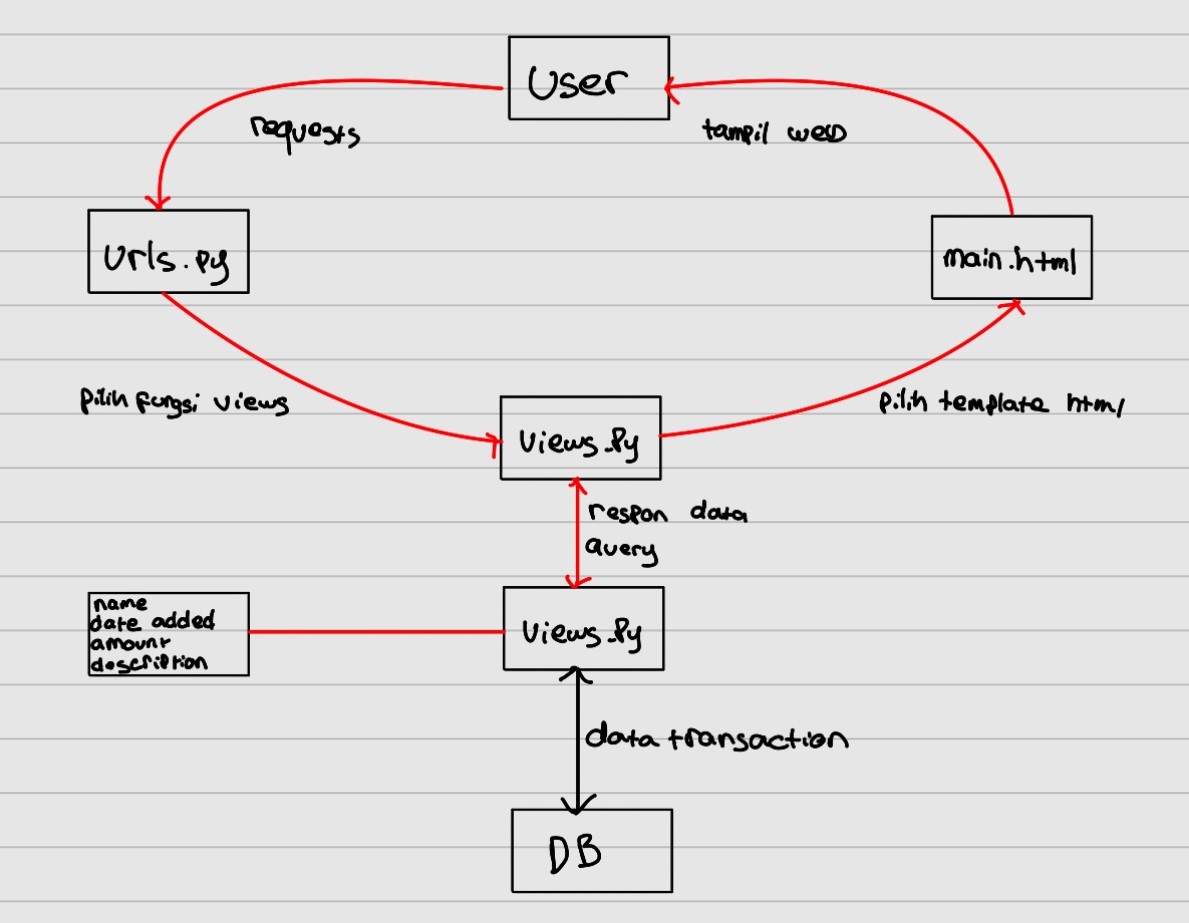 User
requests
tampil web
Urls.py
main.html
pilih fungsi views
pilih template html
views.py
respon data
query
name
date added
amount
description
views.py
data transaction
DB